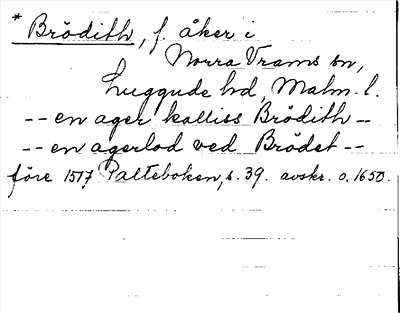 * Brödith, f. åker i
Norra Vrams sn,
Luggude hd, Malm. l.
-- en ager kalliss Brödith --
-- en agerlod ved Brödet --
före 1517 Palteboken, s. 39. avskr. o. 1650.